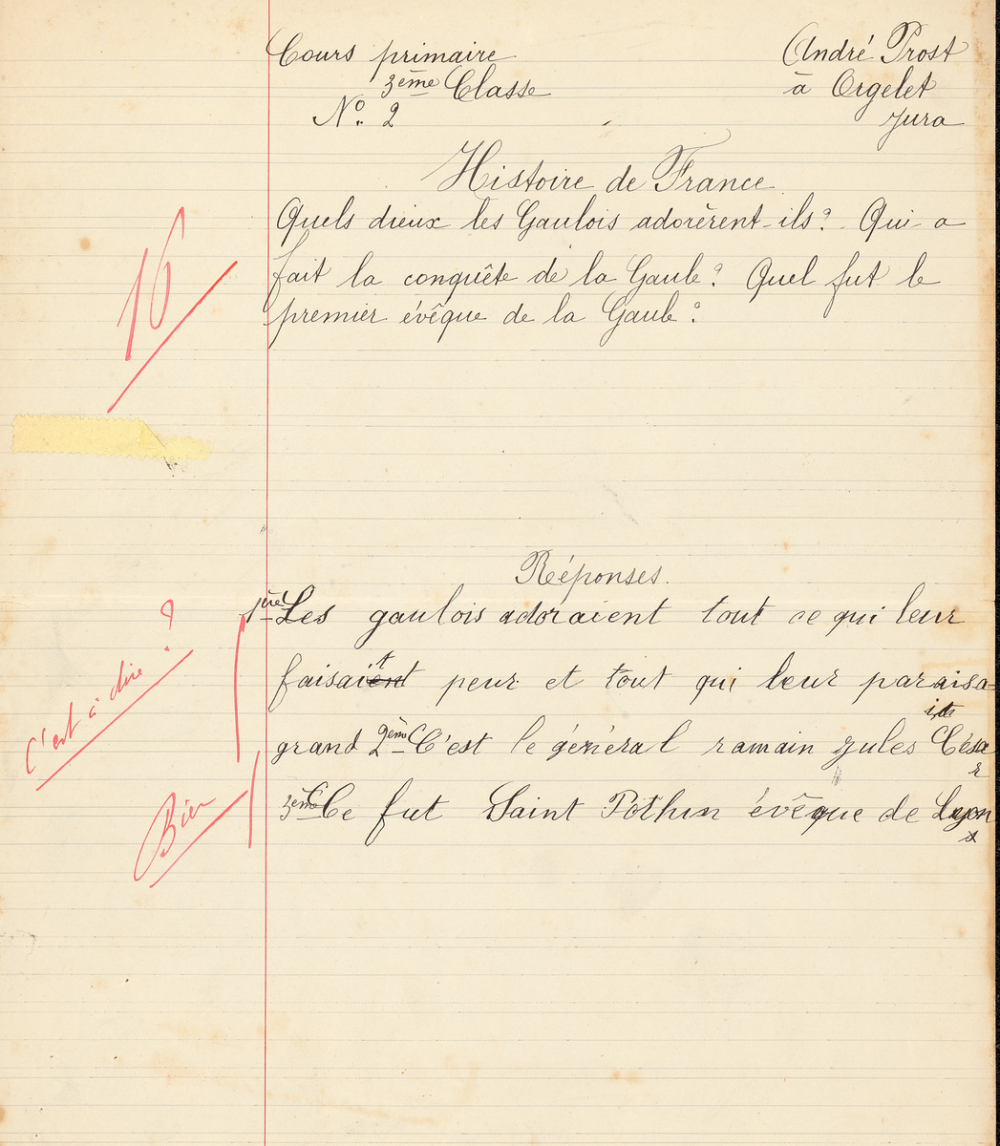 Cours primaire
André Prost
3ème Classe
à Orgelet
No. 2
Jura
Histoire de France
Quels dieux les Gaulois adorèrent-ils? Qui a
fait la conquête de la Gaule? Quel fut le
premier évêque de la Gaule?
16
Réponses.
1ère Les gaulois adoraient tout ce qui leur
faisait peur et tout qui leur paraisa
it
grand 2ème C'est le général ramain Jules Césa
r
3ème Ce fut Saint Pothin évêque de Lyon
C'est à dire?
Bien